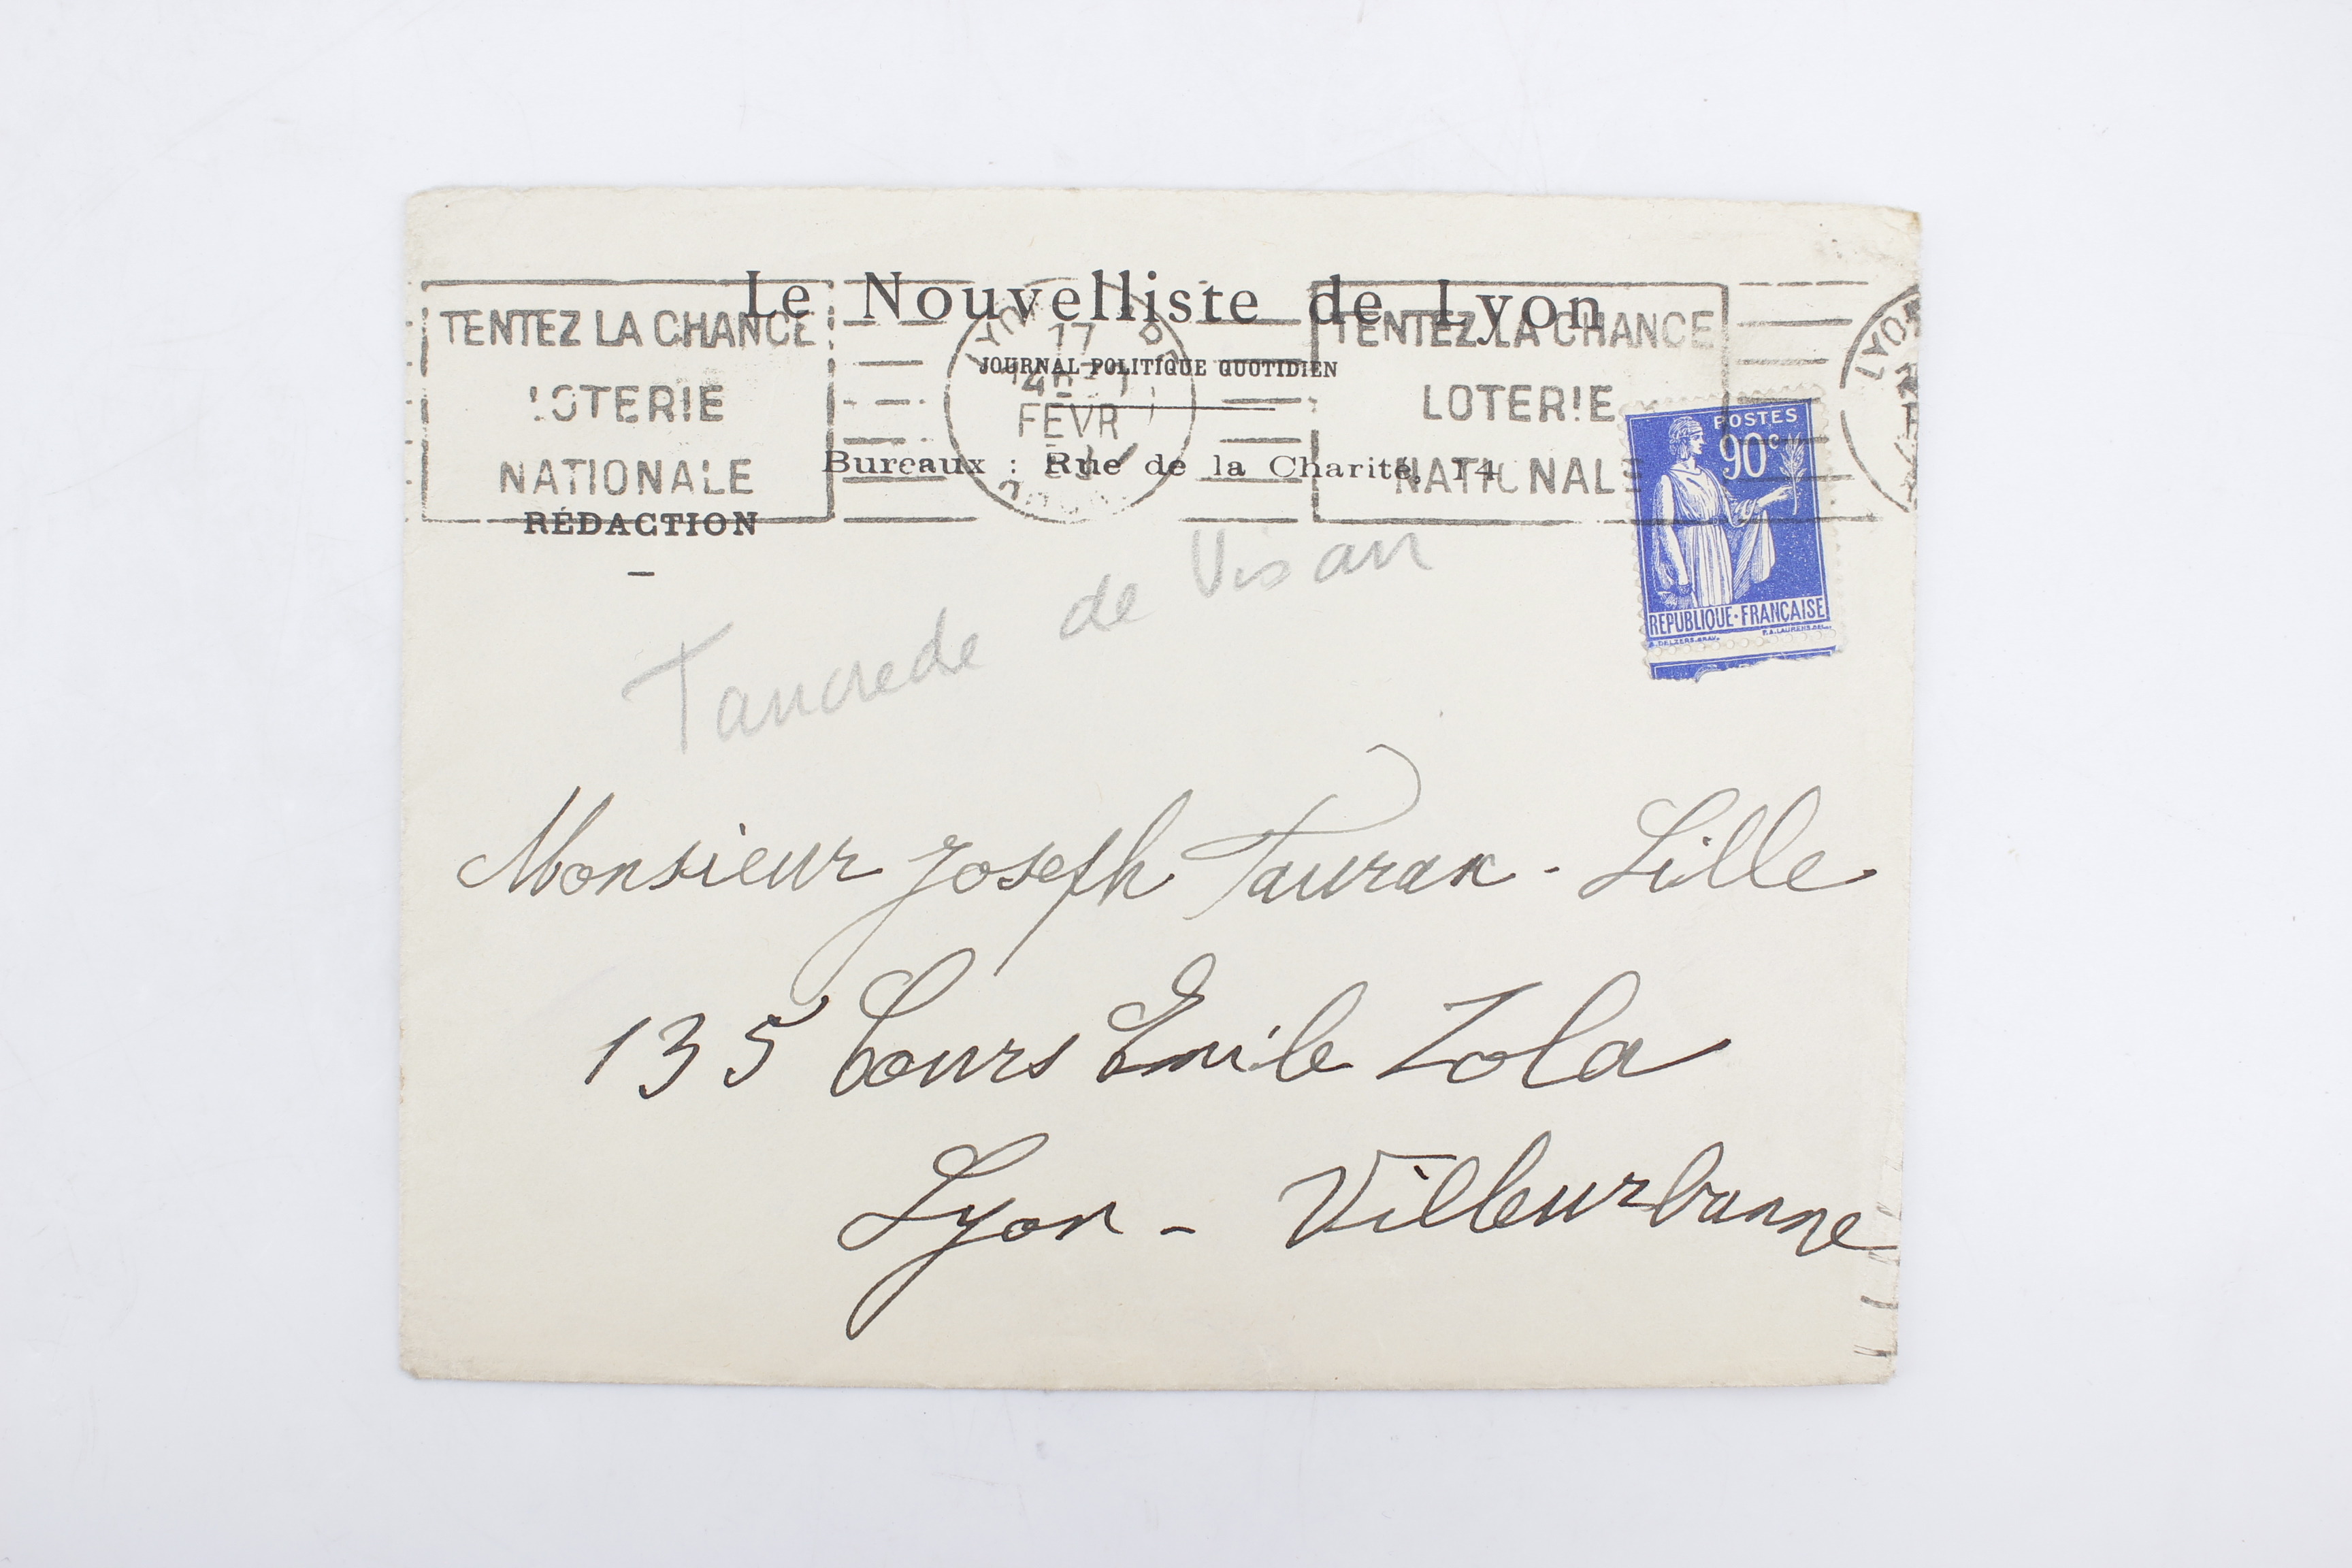 Le Nouvelliste de Lyon
JOURNAL POLITIQUE QUOTIDIEN
Bureaux : Rue de la Charité, 14
RÉDACTION
TENTEZ LA CHANCE
LOTERIE
NATIONALE
17
FEVR
TENTEZ LA CHANCE
LOTERIE
NATIONALE
LYON
POSTES
90c
REPUBLIQUE-FRANÇAISE
Tancrede de Visan
Monsieur Joseph Taurax - Lille
135 Cours Emile Zola
Lyon - Villeurbanne